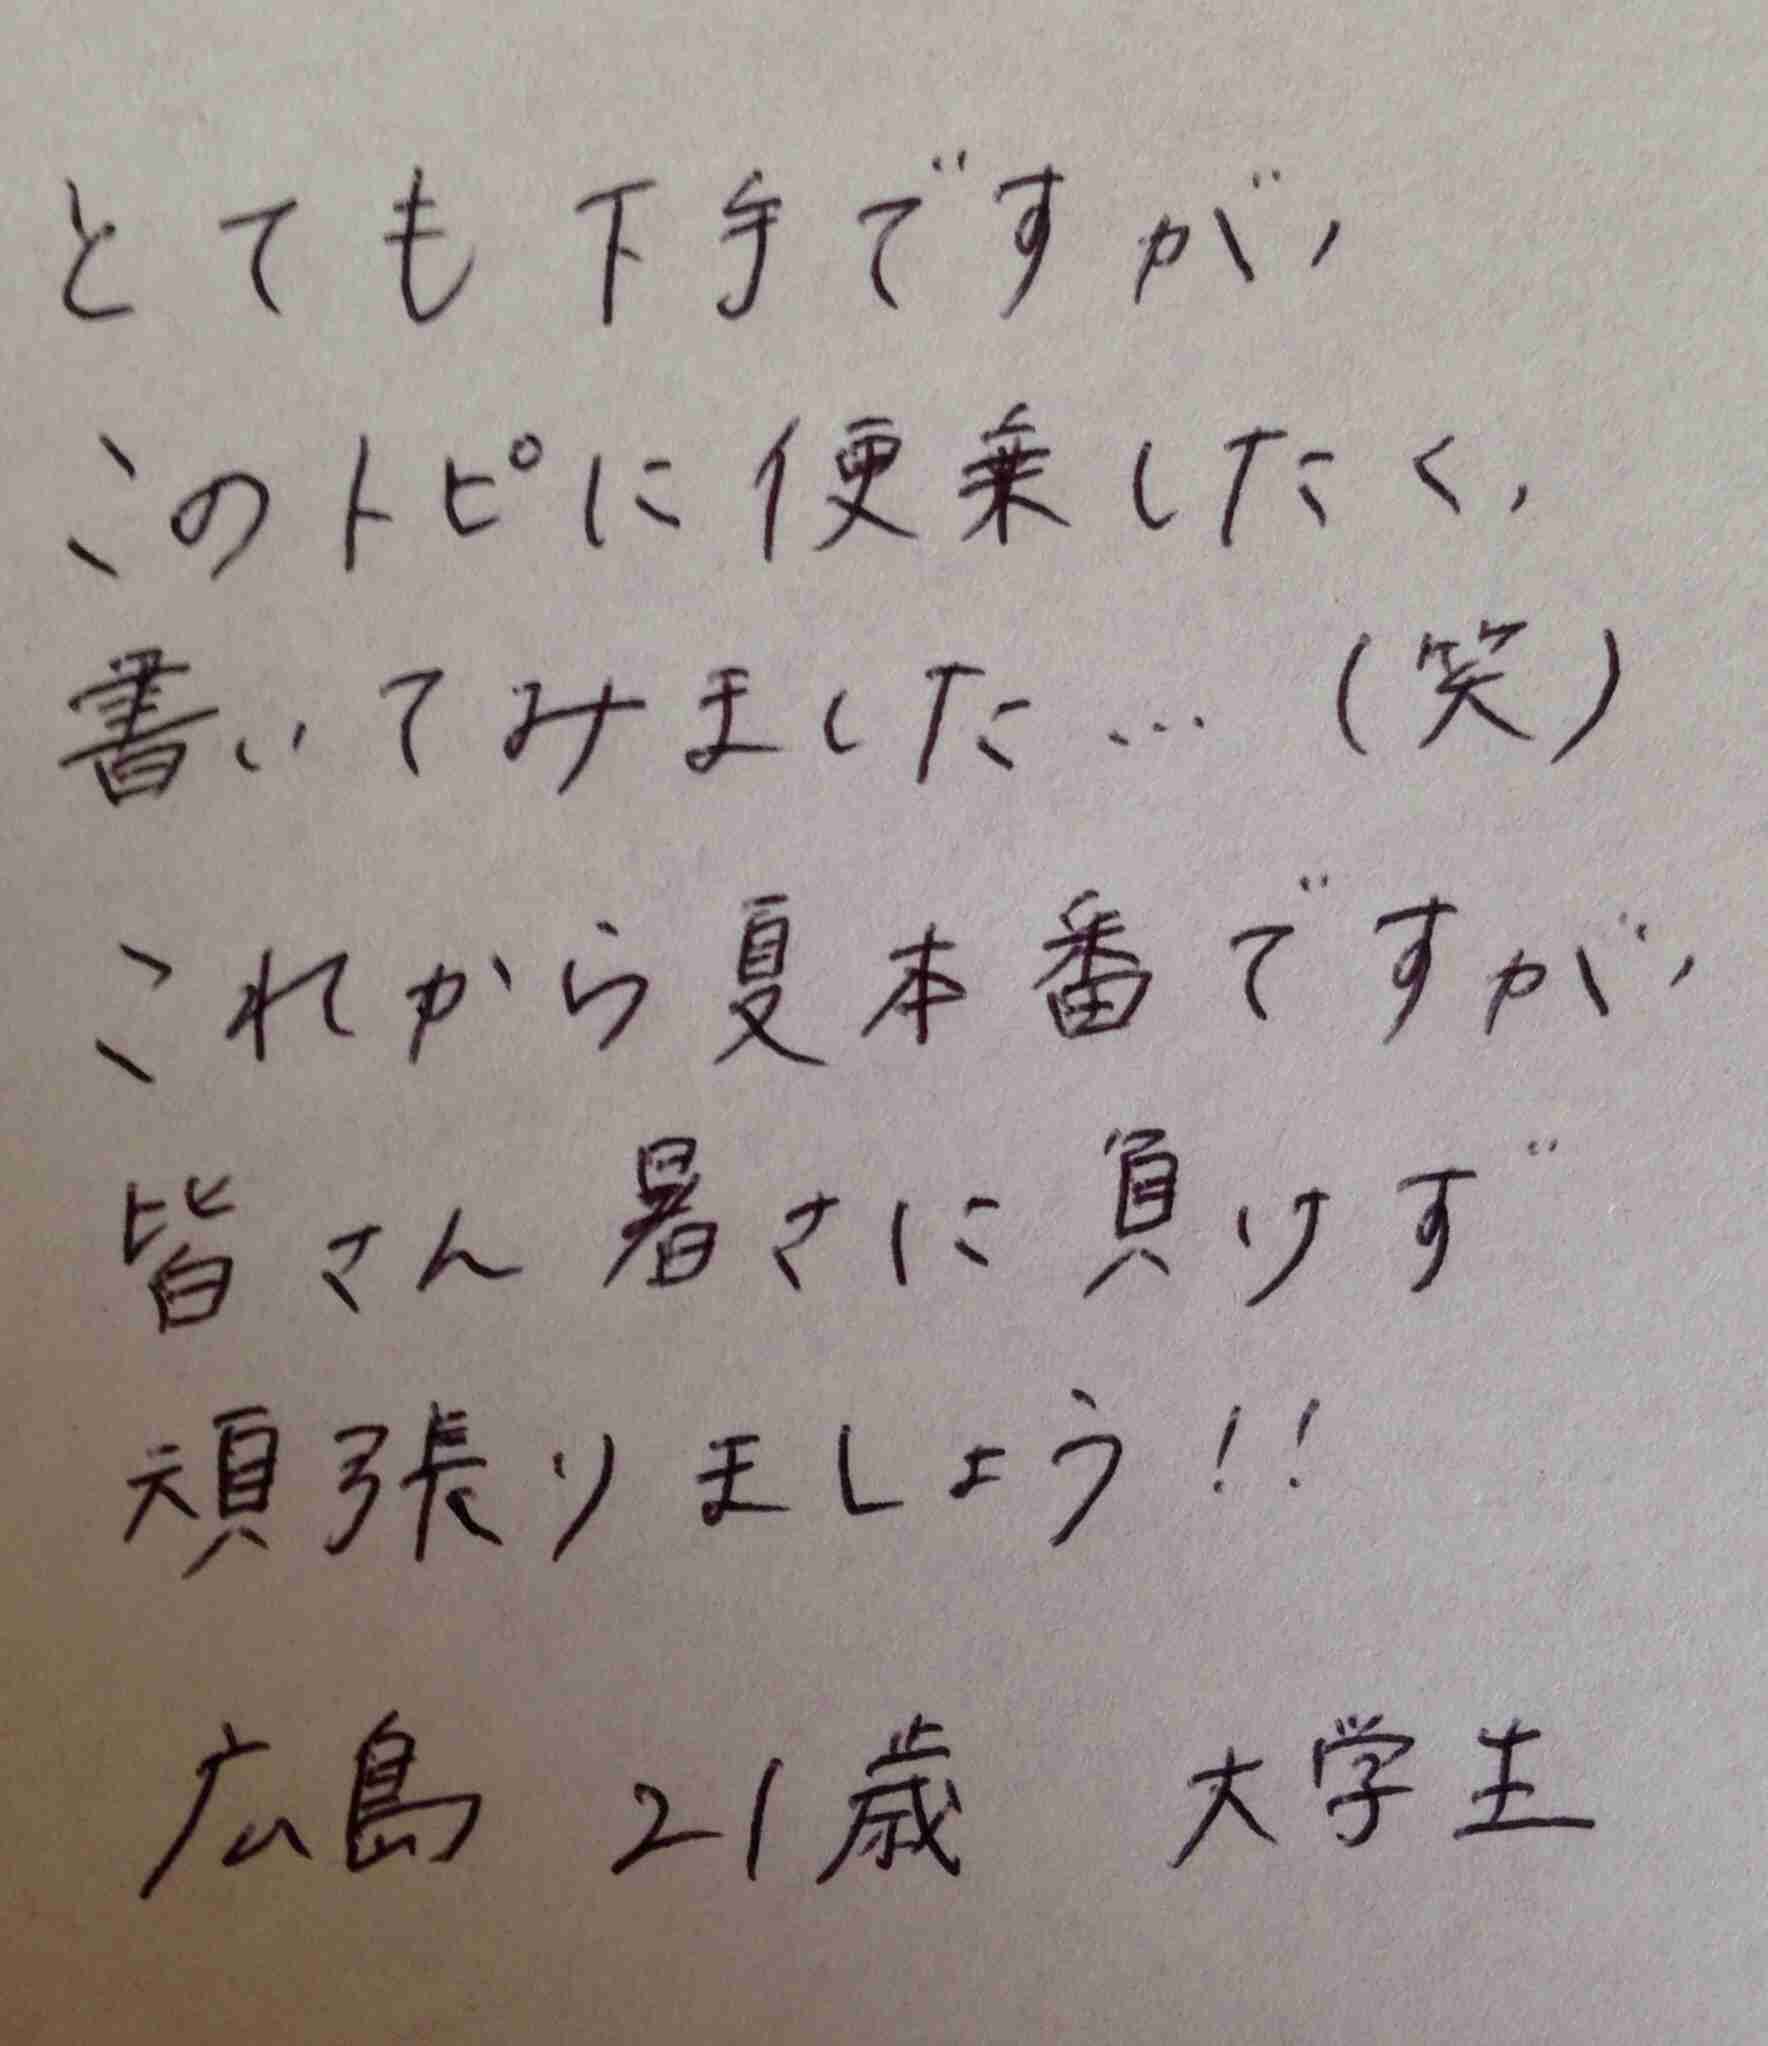 とても下手ですが、
このトピに便乗したく、
書いてみました…（笑）
これから夏本番ですが、
皆さん暑さに負けず
頑張りましょう!!
広島 21歳 大学生